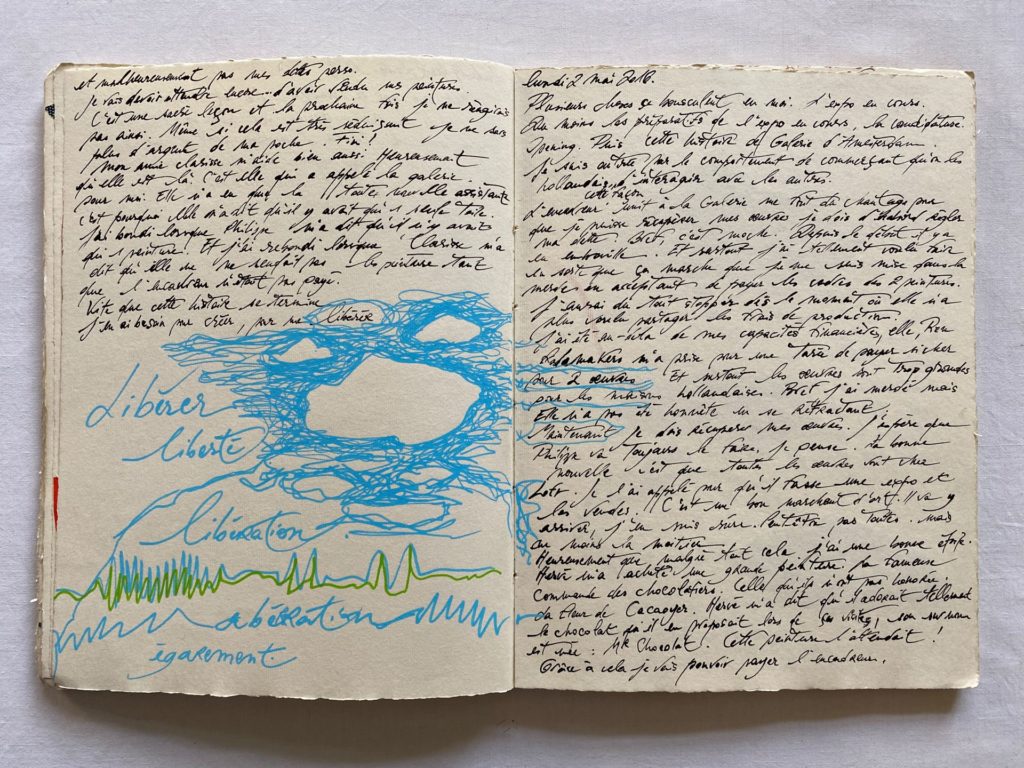 et malheureusement pas mes dettes perso.
je vais devoir attendre encore d'avoir vendu mes peintures.
C'est une sacrée leçon et la prochaine fois je ne réagirais
pas ainsi. Même si cela est très séduisant je ne sors
plus d'argent de ma poche. Fini!
Mon amie Clarisse m'aide bien aussi. Heureusement
qu'elle est là. C'est elle qui a appelé la galerie
pour moi. Elle n'a eu que la toute nouvelle assistante
c'est pourquoi elle m'a dit qu'il y avait qu'1 seule toile.
J'ai bondi lorsque Philipp m'a dit qu'il n'y avait
qu'1 peinture! Et j'ai rebondi lorsque Clarisse m'a
dit qu'elle ne me rendrait pas la peinture tant
que l'encadreur n'était pas payé.
Vite que cette histoire se termine
j'en ai besoin pour créer, pour me libérer
Libérer
liberté
libération
libération
également.
lundi 2 mai 2016.
Plusieurs choses se bousculent en moi. L'expo en cours.
Du moins les préparatifs de l'expo en cours, la candidature
Opening. Puis cette histoire de Galerie d'Amsterdam.
Je suis outrée par le comportement de commerçant qu'on les
hollandais d'interagir avec les autres.
cette façon
L'encadreur, unit à la Galerie me fait du chantage pour
que je puisse récupérer mes œuvres je dois d'abord régler
ma dette. Bref, c'est moche. Depuis le début il y a
eu embrouille. Et surtout j'ai tellement voulu faire
en sorte que ça marche que je me suis mise dans la
merde en acceptant de payer les cadres des 2 peintures.
J'aurais du tout stopper dès le moment où elle n'a
plus voulu partager les frais de production.
J'ai été au-delà de mes capacités financières, elle, Ren
m'a prise pour une tarée de payer si cher
pour 2 œuvres. Et surtout les œuvres sont trop grandes
pour les maisons hollandaises. Bref j'ai merdé mais
Elle n'a pas été honnête en se rétractant
Maintenant je dois récupérer mes œuvres. J'espère que
Philipp va toujours le faire, je pense. La bonne
nouvelle c'est que toutes les œuvres sont chez
Je l'ai appelé pour qu'il fasse une expo et
les vendes. C'est un bon marchand d'art. Il va y
arriver, j'en suis sûre. Peut-être pas toutes. Mais
au moins la moitier.
Heureusement que malgré tout cela j'ai une bonne étoile.
Hervé m'a acheté une grande peinture, la fameuse
commande des chocolatiers. Celle qu'ils n'ont pas honorée.
La fleur de Cacaoyer. Hervé m'a dit qu'il adorait tellement
le chocolat qu'il en proposait lors de ses visites, son surnom
est née: Mr Chocolat. Cette peinture l'attendait!
Grâce à cela je vais pouvoir payer l'encadreur.